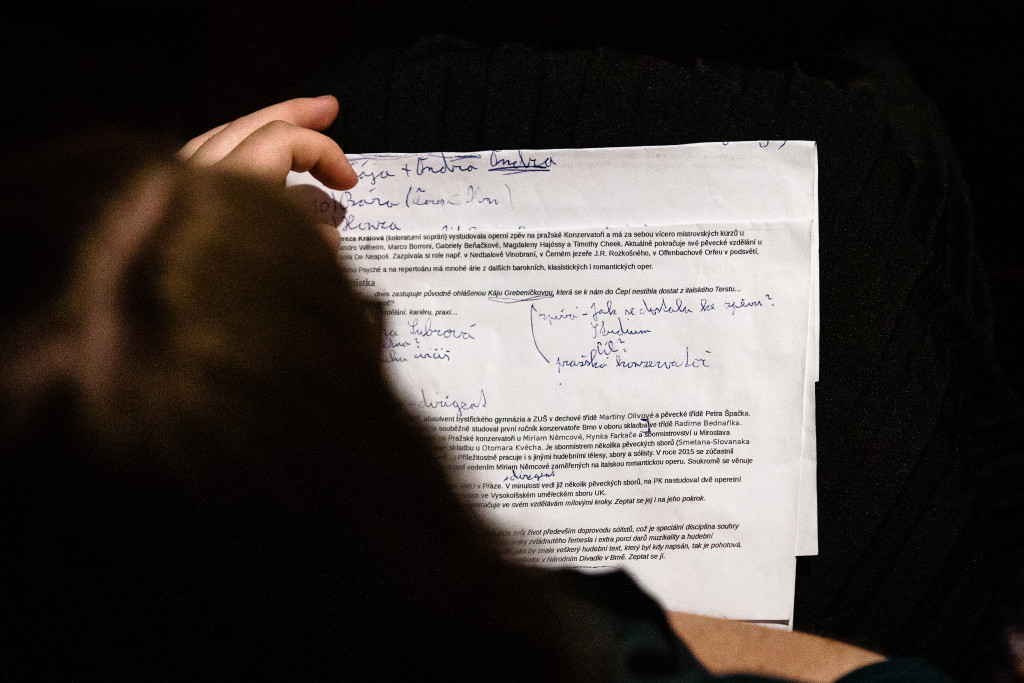 Kája + Ondra Ondra
Bára (
Honza
Králová (koloraturní soprán) vystudovala operní zpěv na pražské Konzervatoři a má za sebou vícero mistrovských kurzů u
Wilhelm, Marco Borroni, Gabriely Beňačkové, Magdaleny Hajóssy a Timothy Cheek. Aktuálně pokračuje své pěvecké vzdělání u
De Neapoli. Zazpívala si role např. v Nedbalově Vinobraní, v Černém jezeře J.R. Rozkošného, v Offenbachově Orfeu v podsvětí,
Psyché a na repertoáru má mnohé árie z dalších barokních, klasistických i romantických oper.
dnes zastupuje původně ohlášenou Káju Grebeníčkovou, která se k nám do Čepí nestihla dostat z italského Terstu…
kariéru, praxi…
zpívá - Jak se dostala ke zpěvu?
Studium
Cíl?
pražská konzervatoř
Subrová
cvičíš
dirigent
absolvent bystřického gymnázia a ZUŠ v dechové třídě Martiny Olivové a pěvecké třídě Petra Špačka.
souběžně studoval první ročník konzervatoře Brno v oboru skladba ve třídě Radima Bednaříka.
na Pražské konzervatoři u Miriam Němcové, Hynka Farkače a sbormistrovství u Miroslava
skladbu u Otomara Kvěcha. Je sbormistrem několika pěveckých sborů (Smetana-Slovanaka
Příležitostně pracuje i s jinými hudebními tělesy, sbory a sólisty. V roce 2015 se zúčastnil
pod vedením Miriam Němcové zaměřených na italskou romantickou operu. Soukromě se věnuje
dirigent
v Praze. V minulosti vedl již několik pěveckých sborů, na PK nastudoval dvě operetní
ve Vysokolšském uměleckém sboru UK.
ve svém vzdělávám mílovými kroky. Zeptat se jej i na jeho pokrok.
svůj život především doprovodu sólistů, což je speciální disciplína souhry
zvládnutého řemesla i extra porci darů muzikality a hudební
by znala veškerý hudební text, který byl kdy napsán, tak je pohotová.
v Národním Divadle v Brně. Zeptat se jí.